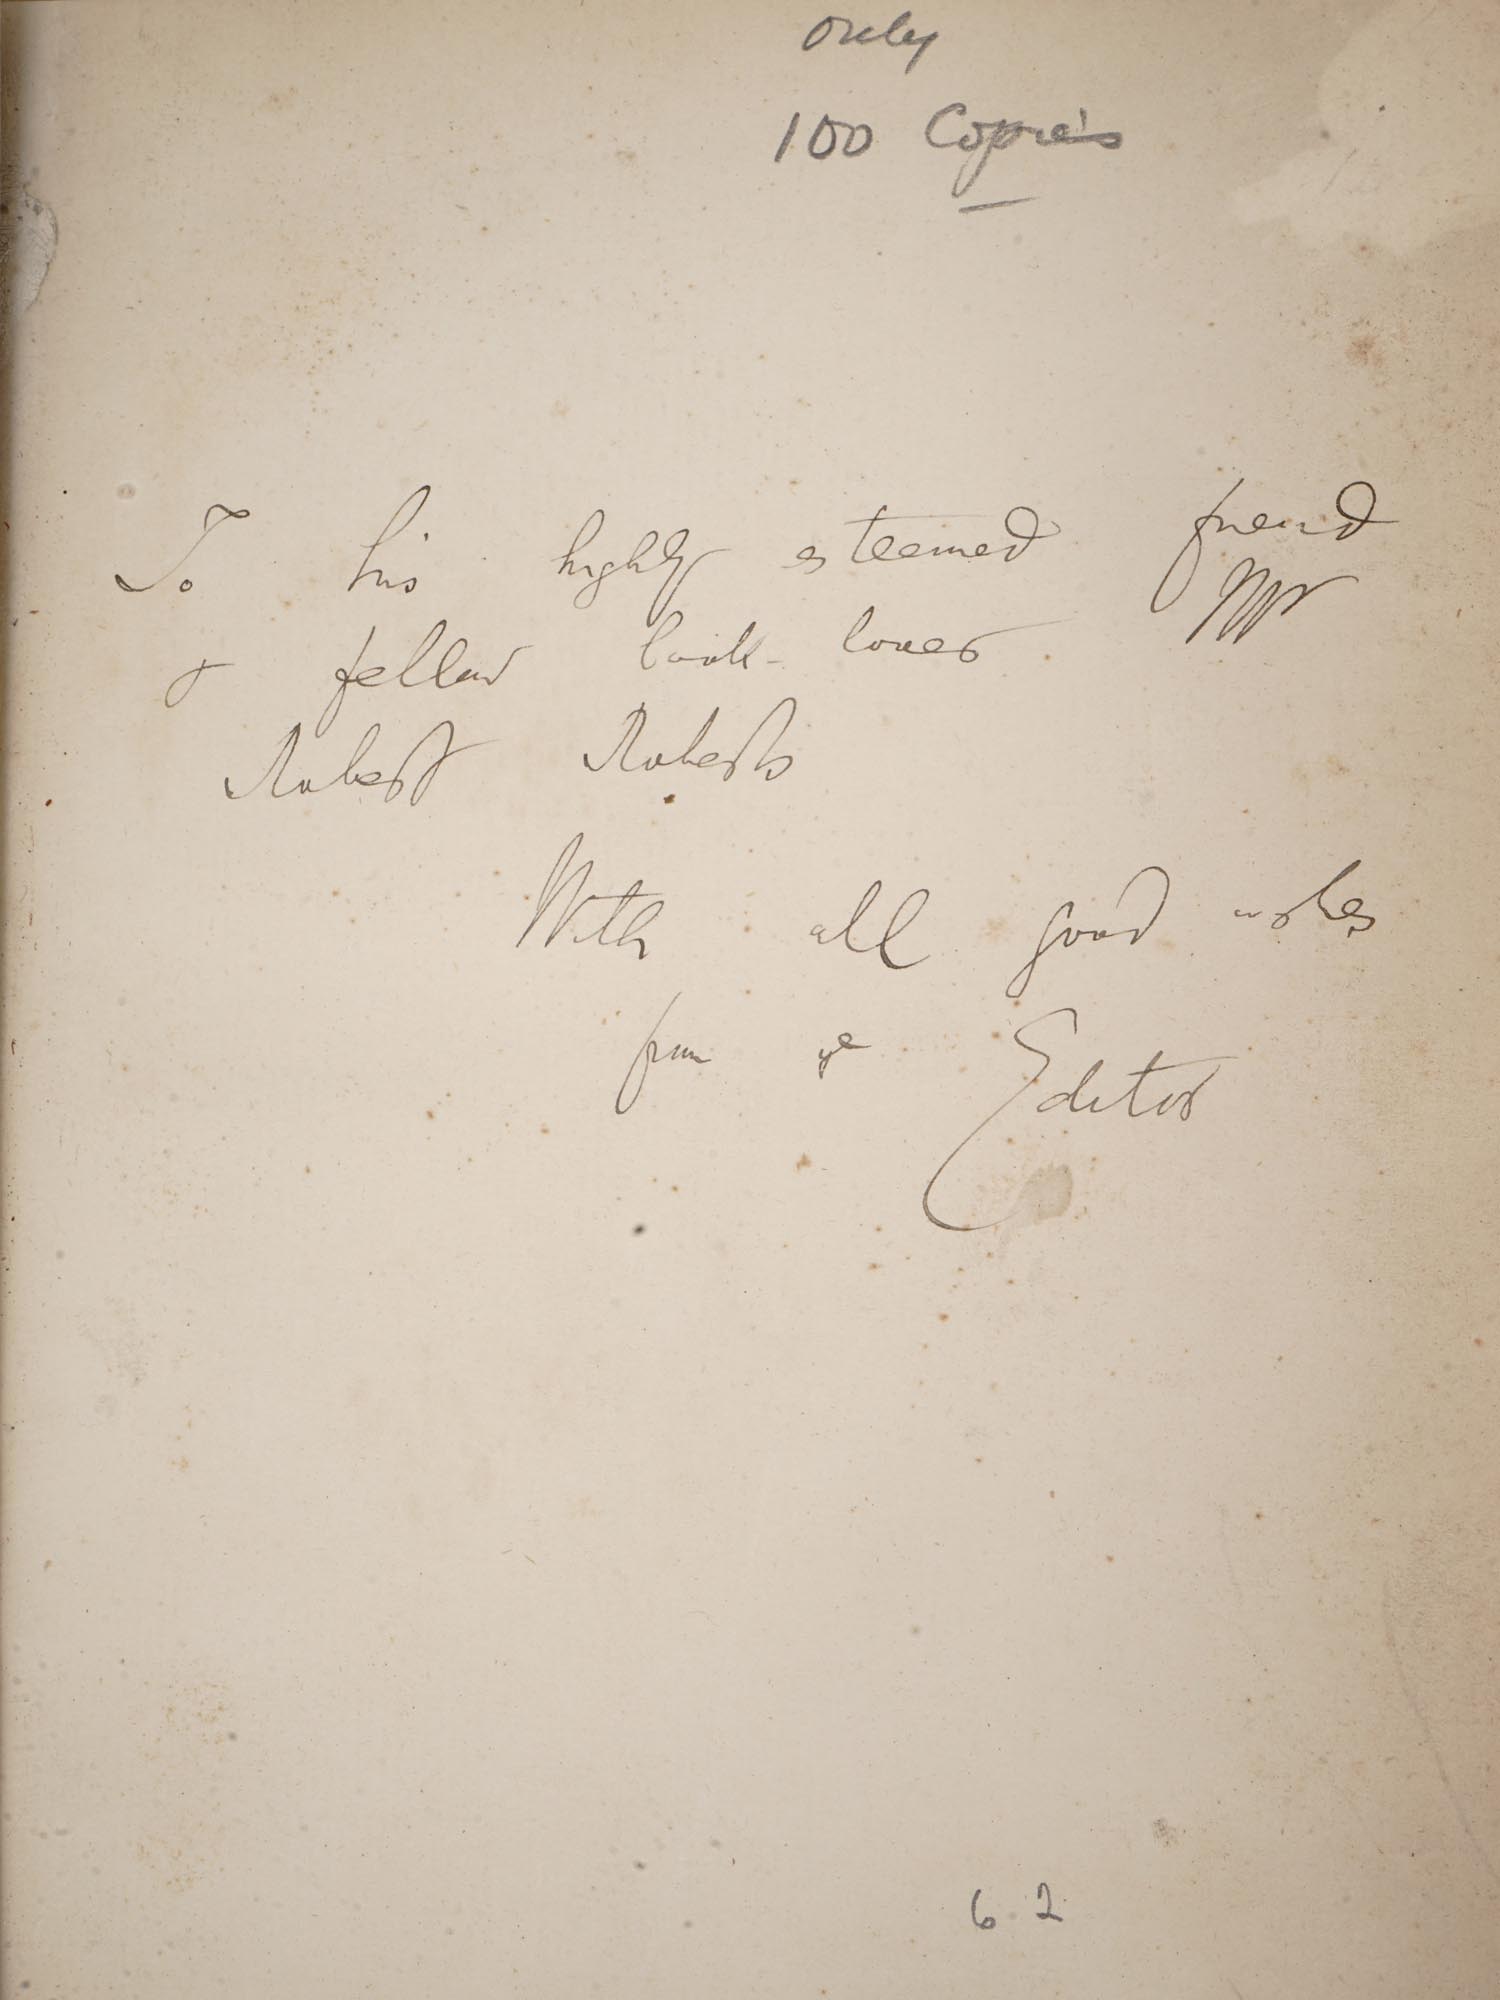 only
100 Copies
To his highly esteemed friend
& fellow book-lover Mr
Robert Roberts
With all good wishes
from ye Editor
62